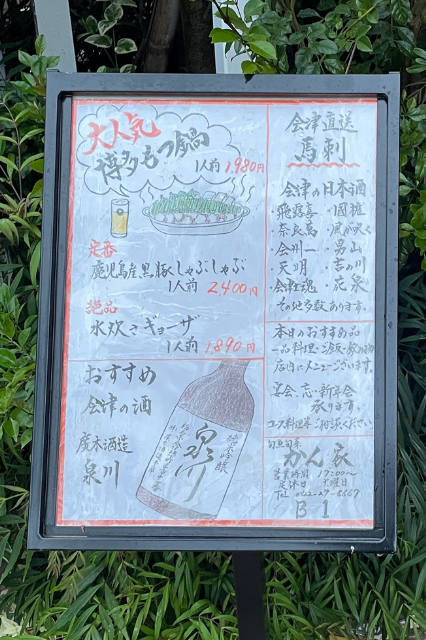 大人気
博多もつ鍋
1人前 1,980円
定番
鹿児島産黒豚しゃぶしゃぶ
1人前 2,400円
絶品
水炊きギョーザ
1人前 1,890円
おすすめ
会津の酒
廣木酒造
泉川
純米吟醸
泉川
会津直送
馬刺
会津の日本酒
・飛露喜 ・國権
・奈良萬 ・風が吹く
・会州一 ・冩山
・天明 ・吉の川
・会津魂 ・花泉
その他多数あります。
本日のおすすめ品
一品料理・ご飯・飲み物
店内にメニューございます。
宴会、忘・新年会
承ります。
コース料理等ご相談ください
旬魚旬菜
かん衣
営業時間 17:00〜
定休日 火曜日
B1